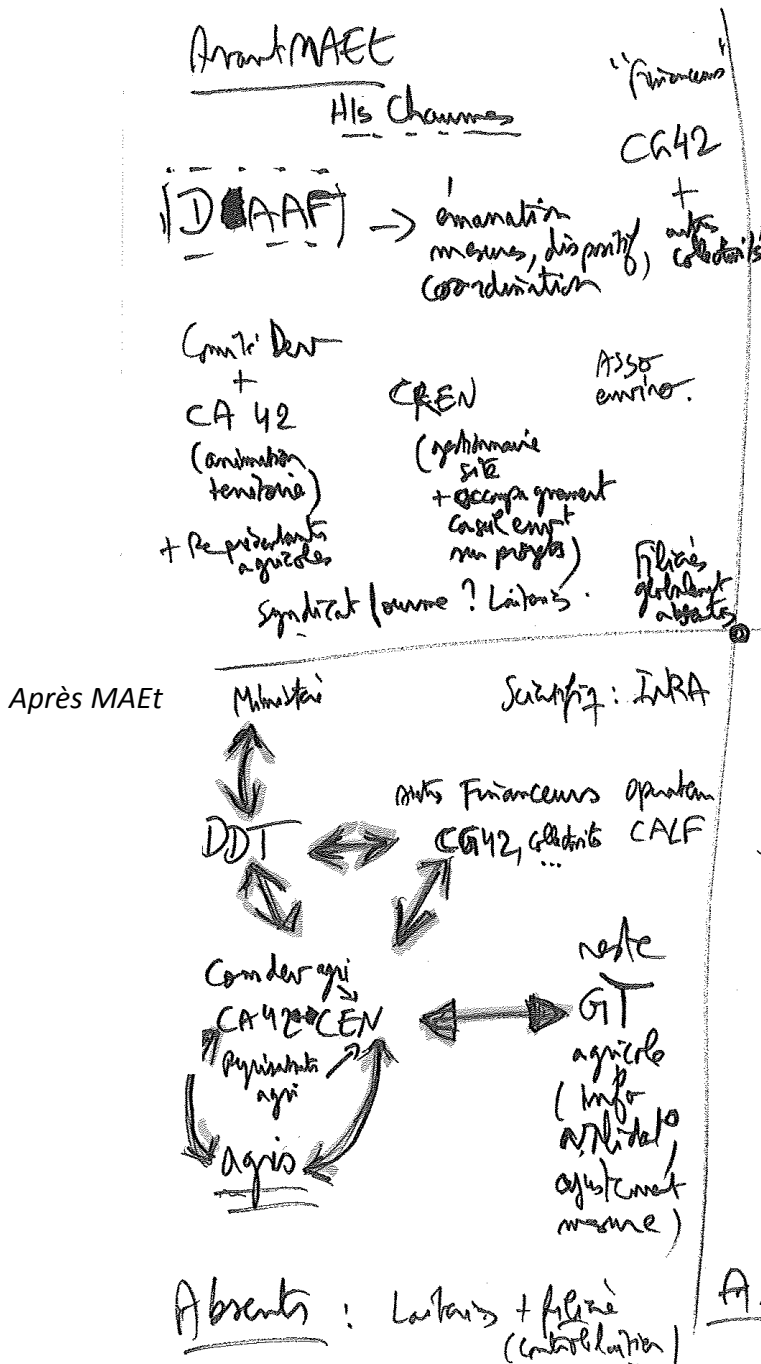 Avant MAEt
Hts Chaumes
"financeurs"
CG42
+
autres
collectivités
DDAAF → émanation
mesures, dispositif,
coordination
Comité Dev
+
CA 42
(animation
territoire)
+ Représentants
agricoles
CREN
(gestionnaire
site
+ accompagnement
sur projets)
Asso
enviro.
Syndicat ? Laiteries.
Filières
globalement
absentes
Après MAEt
Ministère
Scientifiq : INRA
DDT
autres Financeurs
CG42, collectivités
...
opérateur
CALF
Com dev agri
CA42 CEN
Représentants
agri
agris
reste
GT
agricole
(info
validat°
ajustement
mesure)
Absents : Laiteries + filière
(contrôle laitier)
A.